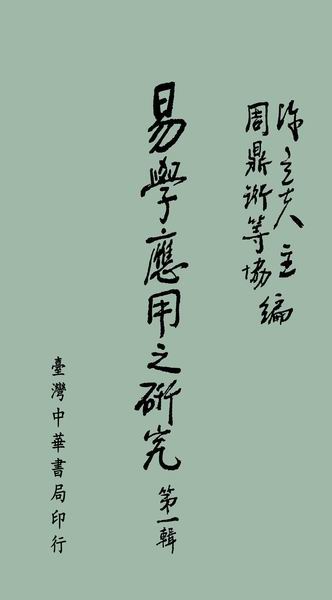 陳立夫主編
周鼎珩等協編
易學應用之研究
第一輯
臺灣中華書局印行